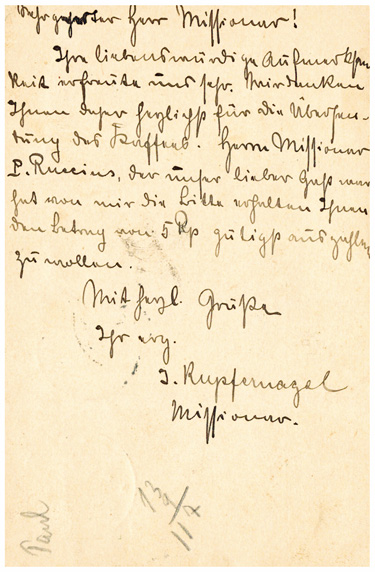 Sehr geehrter Herr Missionar!
Ihre liebenswürdige Aufmerksam-
keit erfreute uns sehr. Wir danken
Ihnen daher herzlichst für die Übersen-
dung des Kaffees. Herrn Missionar
P. Ruccius, der unser lieber Gast war
hat von mir die Bitte erhalten Ihnen
den Betrag von 5 Rp gütigst auszahlen
zu wollen.
Mit herzl. Gruße
Ihr erg.
J. Kupfernagel
Missionar.
13/9
11
Paul